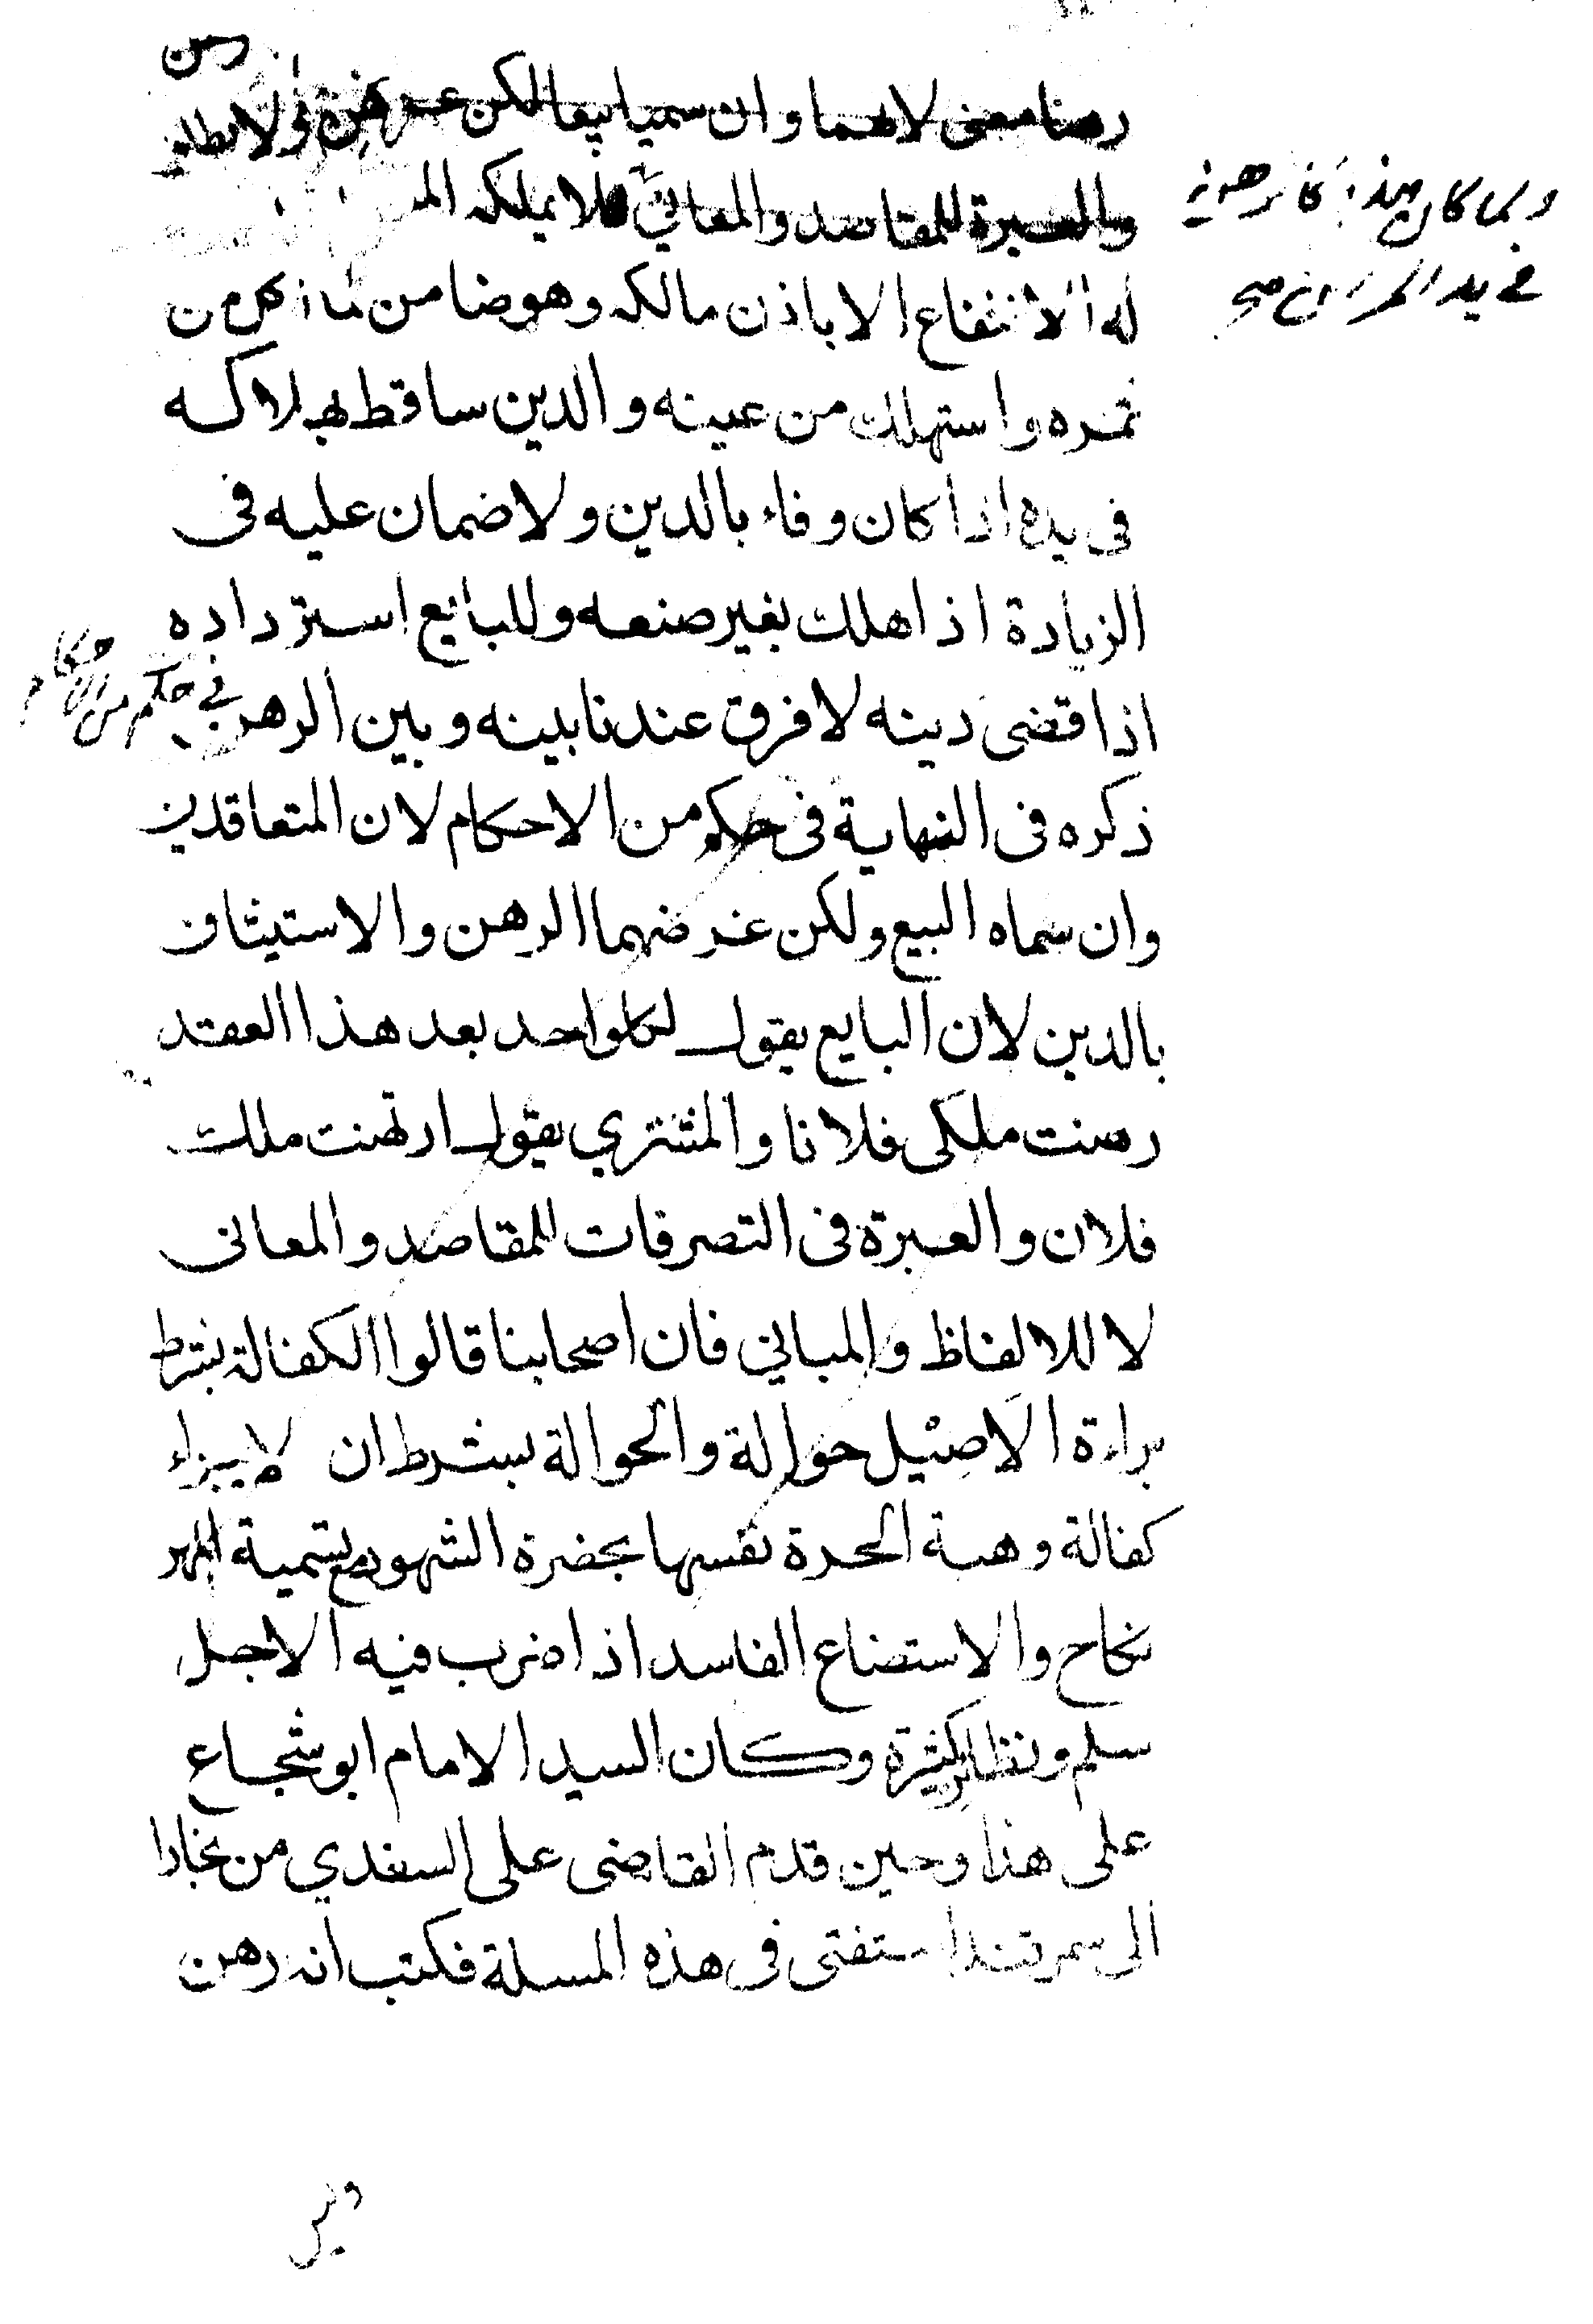 رهنا معنى لانهما وان سميا بيعا لكن غرضهما
والعبرة للمقاصد والمعاني فلا يملكه
له الانتفاع الا باذن مالكه وهو ضامن لما اكل من
ثمره واستهلك من عينه والدين ساقط بهلاكه
فى يده اذا كان وفاء بالدين ولا ضمان عليه فى
الزيادة اذا هلك بغير صنعه وللبايع استرداده
اذا قضى دينه لا فرق عندنا بينه وبين الرهن
في حكم من الاحكام
ذكره فى النهاية فى حكم من الاحكام لان المتعاقدين
وان سماه البيع ولكن غرضهما الرهن والاستيثاق
بالدين لان البايع يقول لكل واحد بعد هذا العقد
رهنت ملكى فلانا والمشتري يقول ارتهنت ملك
فلان والعبرة فى التصرفات للمقاصد والمعانى
لا للالفاظ والمباني فان اصحابنا قالوا الكفالة بشرط
براءة الاصيل حوالة والحوالة بشرط ان لا يبراء
كفالة وهبة الحرة نفسها بحضرة الشهود مع تسمية المهر
نكاح والاستصناع الفاسد اذا ضرب فيه الاجل
سلم ونظائره كثيرة وكان السيد الامام ابو شجاع
على هذا وحين قدم القاضى على السغدي من بخارا
الى سمرقند استفتى فى هذه المسلة فكتب انه رهن